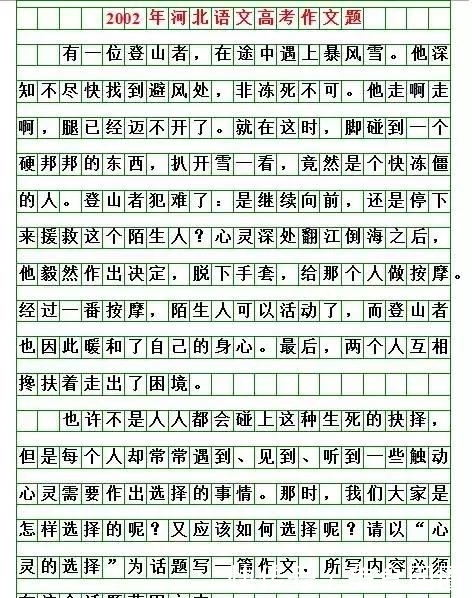 2002年河北语文高考作文题
有一位登山者，在途中遇上暴风雪。他深
知不尽快找到避风处，非冻死不可。他走啊走
啊，腿已经迈不开了。就在这时，脚碰到一个
硬邦邦的东西，扒开雪一看，竟然是个快冻僵
的人。登山者犯难了：是继续向前，还是停下
来援救这个陌生人？心灵深处翻江倒海之后，
他毅然作出决定，脱下手套，给那个人做按摩。
经过一番按摩，陌生人可以活动了，而登山者
也因此暖和了自己的身心。最后，两个人互相
搀扶着走出了困境。
也许不是人人都会碰上这种生死的抉择，
但是每个人却常常遇到、见到、听到一些触动
心灵需要作出选择的事情。那时，我们大家是
怎样选择的呢？又应该如何选择呢？请以“心
灵的选择”为话题写一篇作文，所写内容必须